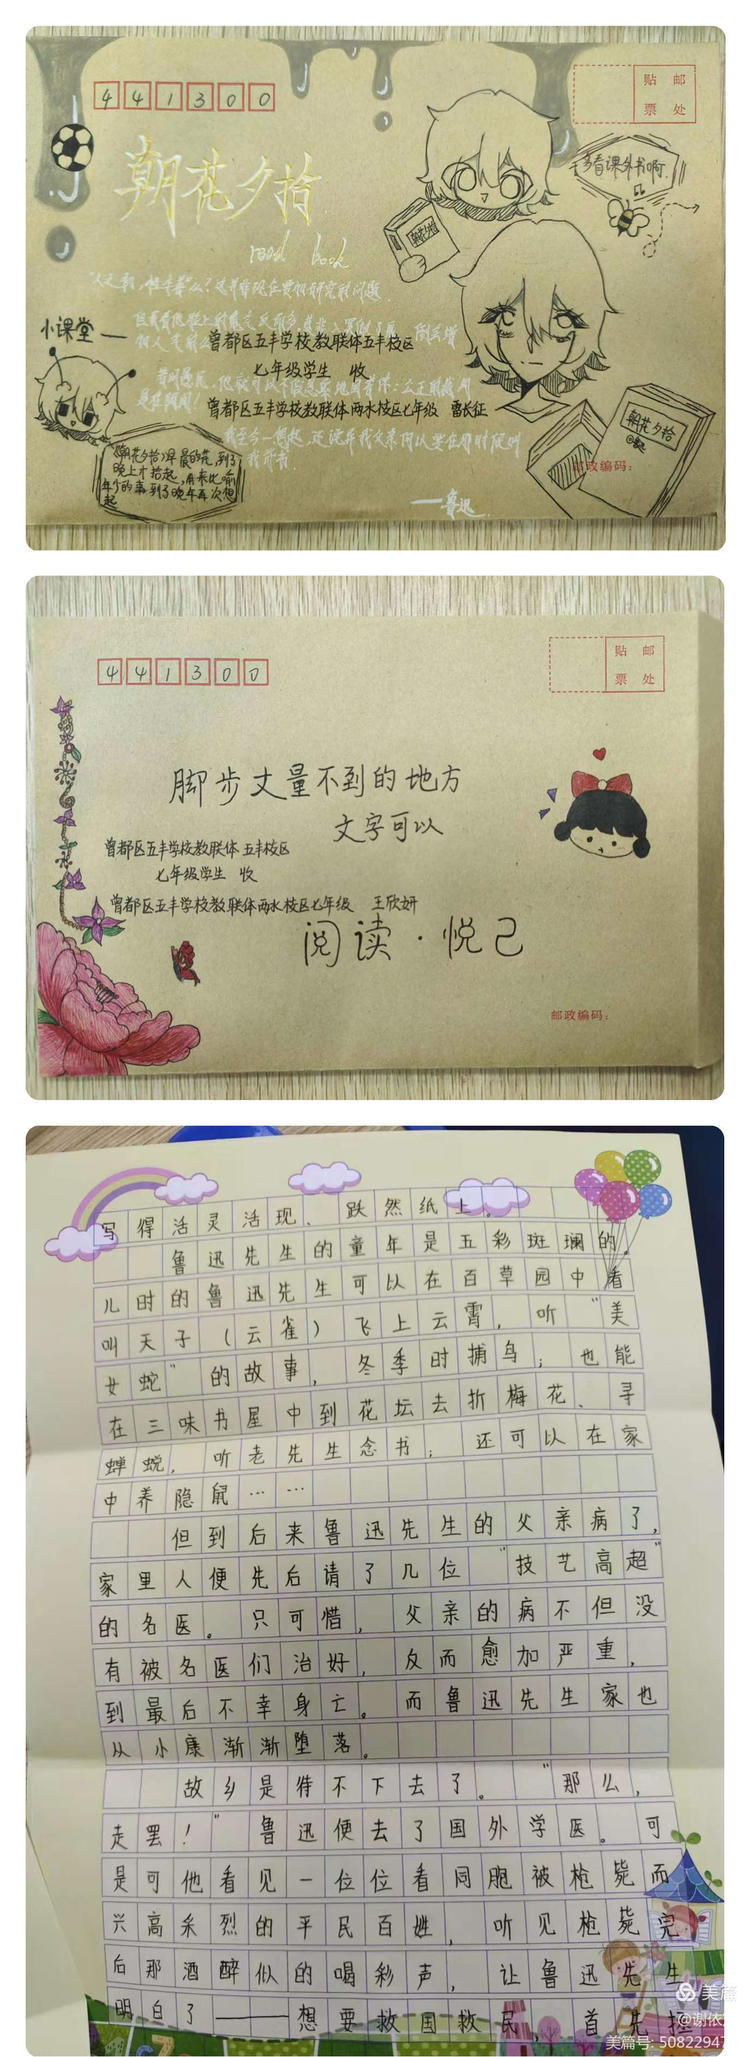 441300
贴 邮
票 处
朝花夕拾
多看课外书啊.
朝花夕拾
read book
小课堂 —
曾都区五丰学校教联体五丰校区
七年级学生 收
曾都区五丰学校教联体两水校区七年级 雷长征
朝花夕拾
邮政编码:
《朝花夕拾》早晨的花,到了
晚上才拾起,用来比喻
年少的事到了晚年再次想
起
——鲁迅.
441300
贴 邮
票 处
脚步丈量不到的地方
文字可以
曾都区五丰学校教联体五丰校区
七年级学生 收
曾都区五丰学校教联体两水校区七年级 王欣妍
阅读·悦己
邮政编码:
写得活灵活现、跃然纸上。
鲁迅先生的童年是五彩斑斓的。
儿时的鲁迅先生可以在百草园中看
叫天子(云雀)飞上云霄,听“美
女蛇”的故事,冬季时捕鸟;也能
在三味书屋中到花坛去折梅花、寻
蝉蜕,听老先生念书;还可以在家
中养隐鼠……
但到后来鲁迅先生的父亲病了,
家里人便先后请了几位“技艺高超”
的名医。只可惜,父亲的病不但没
有被名医们治好,反而愈加严重,
到最后不幸身亡。而鲁迅先生家也
从小康渐渐堕落。
故乡是待不下去了。“那么,
走罢!”鲁迅便去了国外学医。可
是可他看见一位位看同胞被枪毙而
兴高采烈的平民百姓,听见枪毙完
后那酒醉似的喝彩声,让鲁迅先生
明白了——想要救国救民,首先拯
美篇
@谢依
美篇号: 50822947